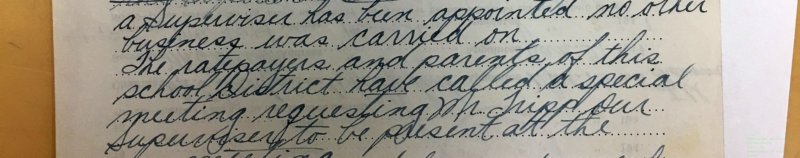 a Supervisor has been appointed no other
business was carried on
The ratepayers and parents of this
school District have called a special
meeting requesting Mr Tripp Our
Superviser, to be present at the